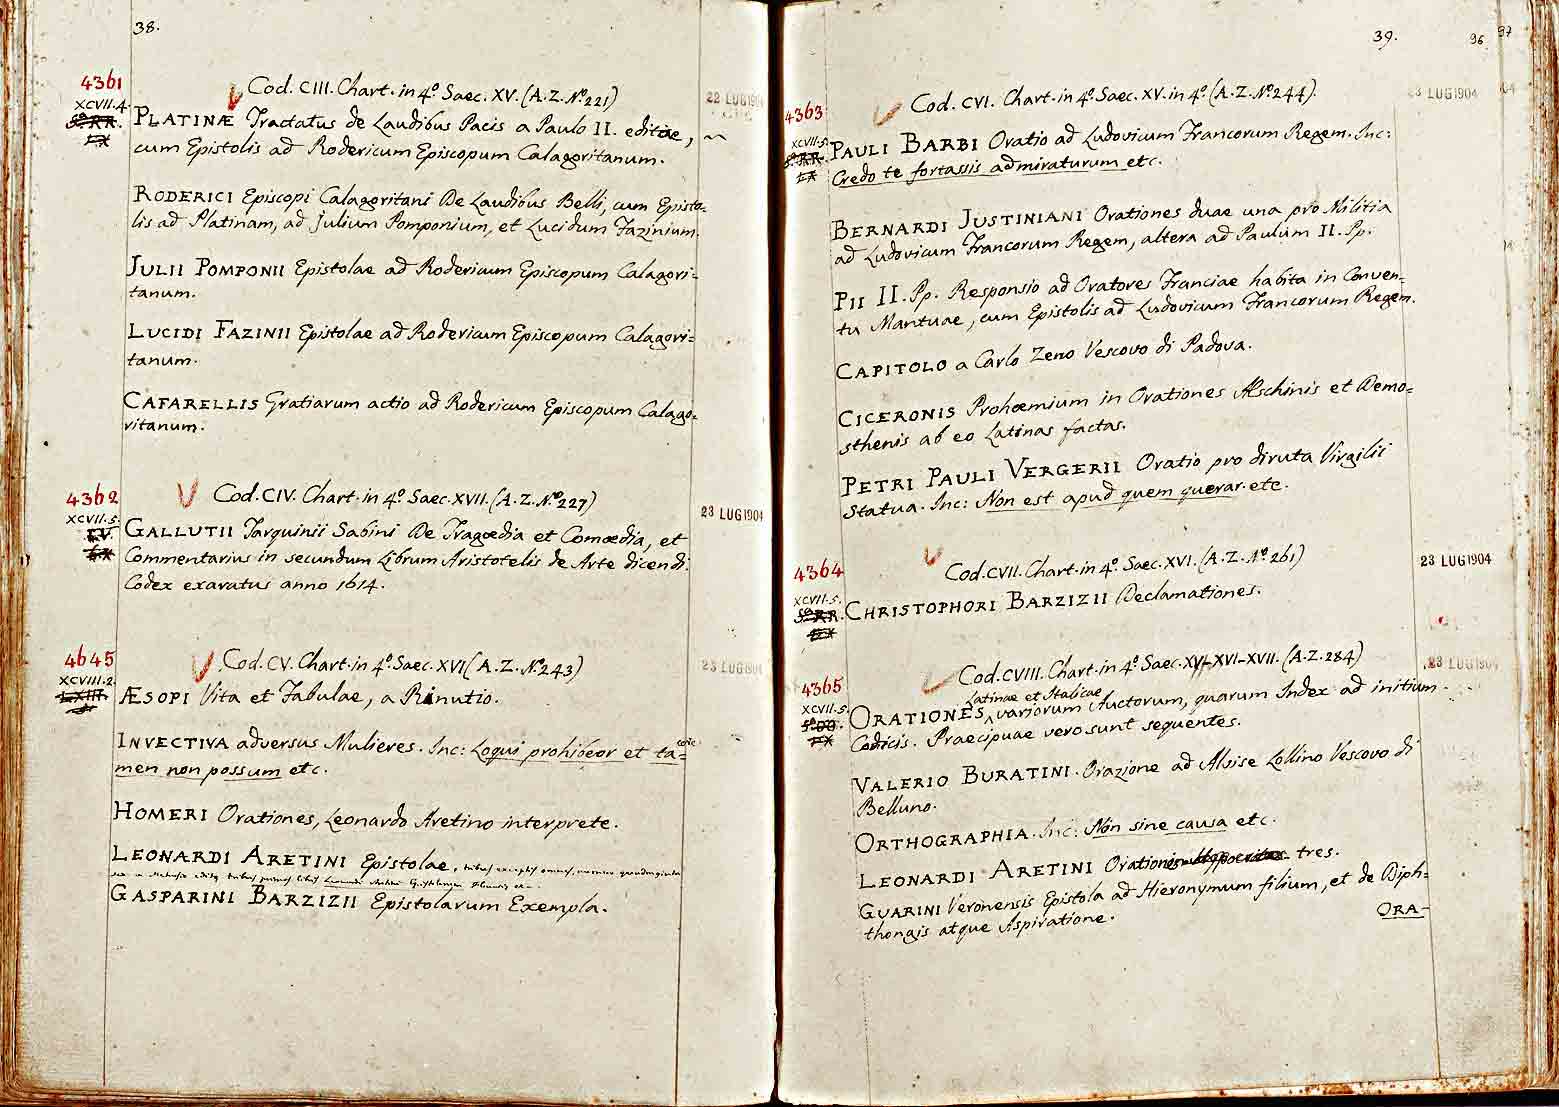 38.
4361
XCVII.4.
Cod. CIII. Chart. in 4º. Saec. XV. (A.Z. Nº. 221)
22 LUG 1904
PLATINÆ Tractatus de Laudibus Pacis a Paulo II. editiae,
cum Epistolis ad Rodericum Episcopum Calagoritanum.
RODERICI Episcopi Calagoritani De Laudibus Belli, cum Episto=
lis ad Platinam, ad Julium Pomponium, et Lucidum Fazinium.
JULII POMPONII Epistolae ad Rodericum Episcopum Calagori=
tanum.
LUCIDI FAZINII Epistolae ad Rodericum Episcopum Calagori=
tanum.
CAFARELLIS Gratiarum actio ad Rodericum Episcopum Calago=
ritanum.
4362
XCVII.5.
Cod. CIV. Chart. in 4º. Saec. XVII. (A.Z. Nº. 227)
23 LUG 1904
GALLUTII Tarquinii Sabini De Tragœdia et Comœdia, et
Commentarius in secundum Librum Aristotelis de Arte dicendi.
Codex exaratus anno 1614.
4645
XCVIII.2.
LXIII.
Cod. CV. Chart. in 4º. Saec. XVI (A.Z. Nº. 243)
23 LUG 1904
ÆSOPI Vita et Fabulae, a Rinutio.
INVECTIVA adversus Mulieres. Inc: Loqui prohibeor et ta=
men non possum etc.
HOMERI Orationes, Leonardo Aretino interprete.
LEONARDI ARETINI Epistolae,
GASPARINI BARZIZII Epistolarum Exempla.
39.
96
97
4363
XCVII.5.
Cod. CVI. Chart. in 4º. Saec. XV. in 4º. (A.Z. Nº. 244).
23 LUG 1904
PAULI BARBI Oratio ad Ludovicum Francorum Regem. Inc:
Credo te fortassis admiraturum etc.
BERNARDI JUSTINIANI Orationes duae una pro Militia
ad Ludovicum Francorum Regem, altera ad Paulum II. Pp.
PII II. Pp. Responsio ad Oratores Franciae habita in Conven=
tu Mantuae, cum Epistolis ad Ludovicum Francorum Regem.
CAPITOLO a Carlo Zeno Vescovo di Padova.
CICERONIS Prohœmium in Orationes Æschinis et Demo=
sthenis ab eo Latinas factas.
PETRI PAULI VERGERII Oratio pro diruta Virgilii
Statua. Inc: Non est apud quem querar etc.
4364
XCVII.5.
Cod. CVII. Chart. in 4º. Saec. XVI. (A.Z. Nº. 261)
23 LUG 1904
CHRISTOPHORI BARZIZII Declamationes.
4365
XCVII.5.
Cod. CVIII. Chart. in 4º. Saec. XV-XVI-XVII. (A.Z. 284)
23 LUG 1904
Latinae et Italicae
ORATIONES variorum Auctorum, quarum Index ad initium
Codicis. Praecipuae vero sunt sequentes.
VALERIO BURATINI. Orazione ad Alvise Lollino Vescovo di
Belluno.
ORTHOGRAPHIA. Inc: Non sine causa etc.
LEONARDI ARETINI Orationes tres.
GUARINI Veronensis Epistola ad Hieronymum filium, et de Diph=
thongis atque Aspiratione.
ORA-